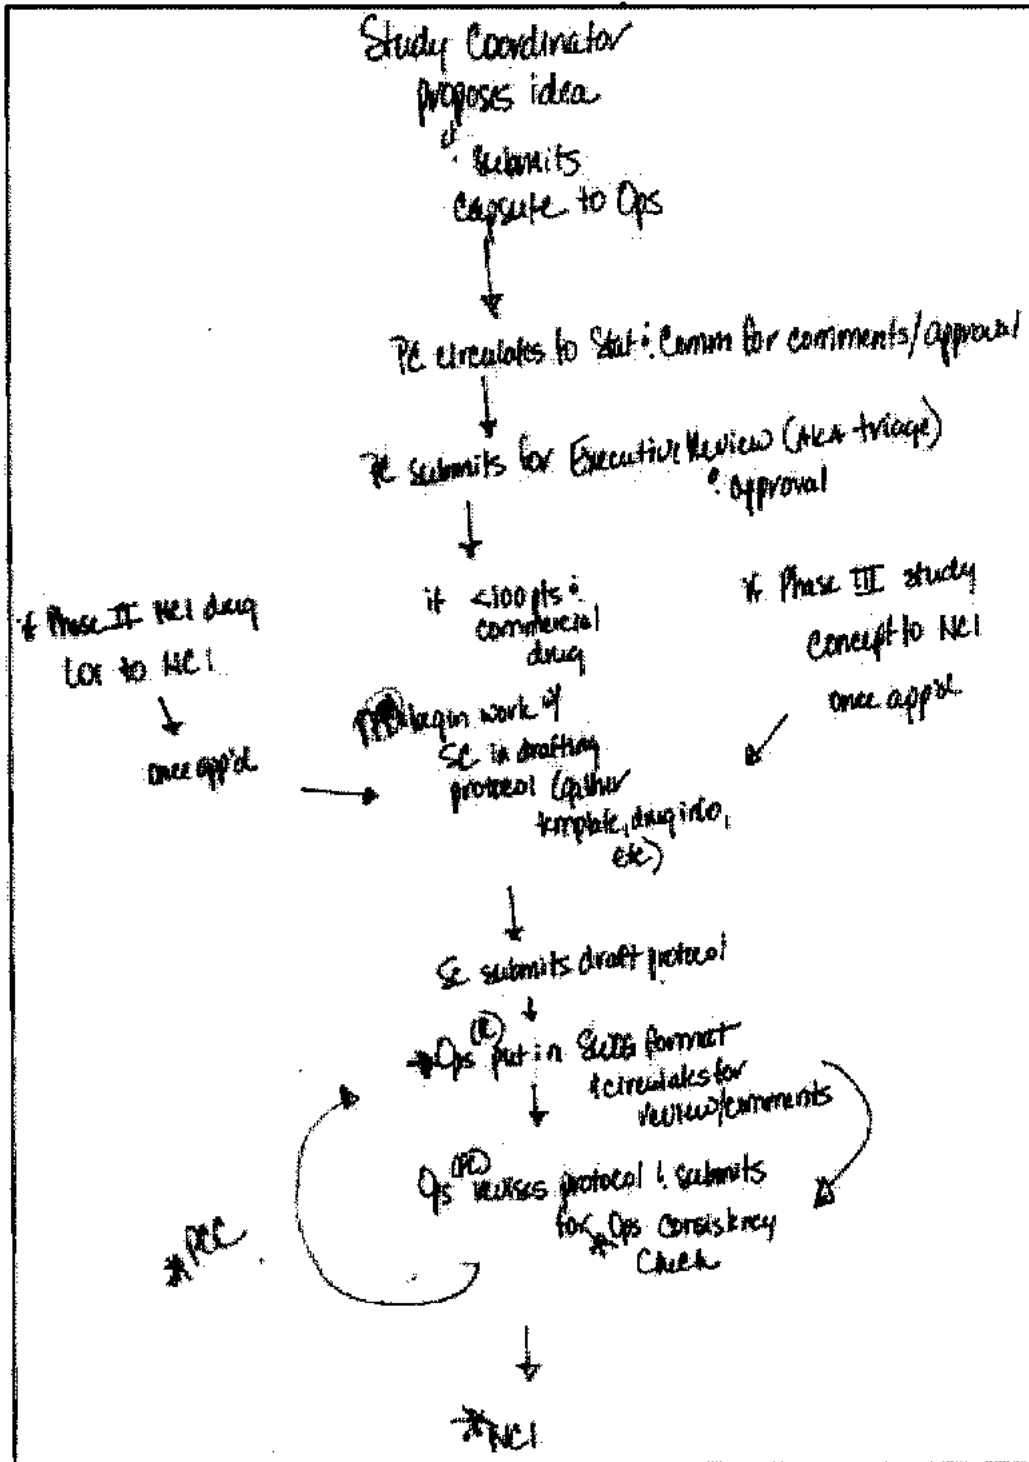 Study Coordinator
proposes idea
& submits
capsule to Ops
PC circulates to Stat & Comm for comments/approval
PC submits for Executive Review (AKA triage)
& approval
if Phase II NCI drug
LOI to NCI
once app'd
if <100 pts &
commercial
drug
if Phase III study
concept to NCI
once app'd
begin work w/
SC in drafting
protocol (gather
template, drug info,
etc)
SC submits draft protocol
*Ops (PC) put in SWOG format
& circulates for
review/comments
Ops (PC) revises protocol & submits
for *Ops consistency
check
*PCC
*NCI